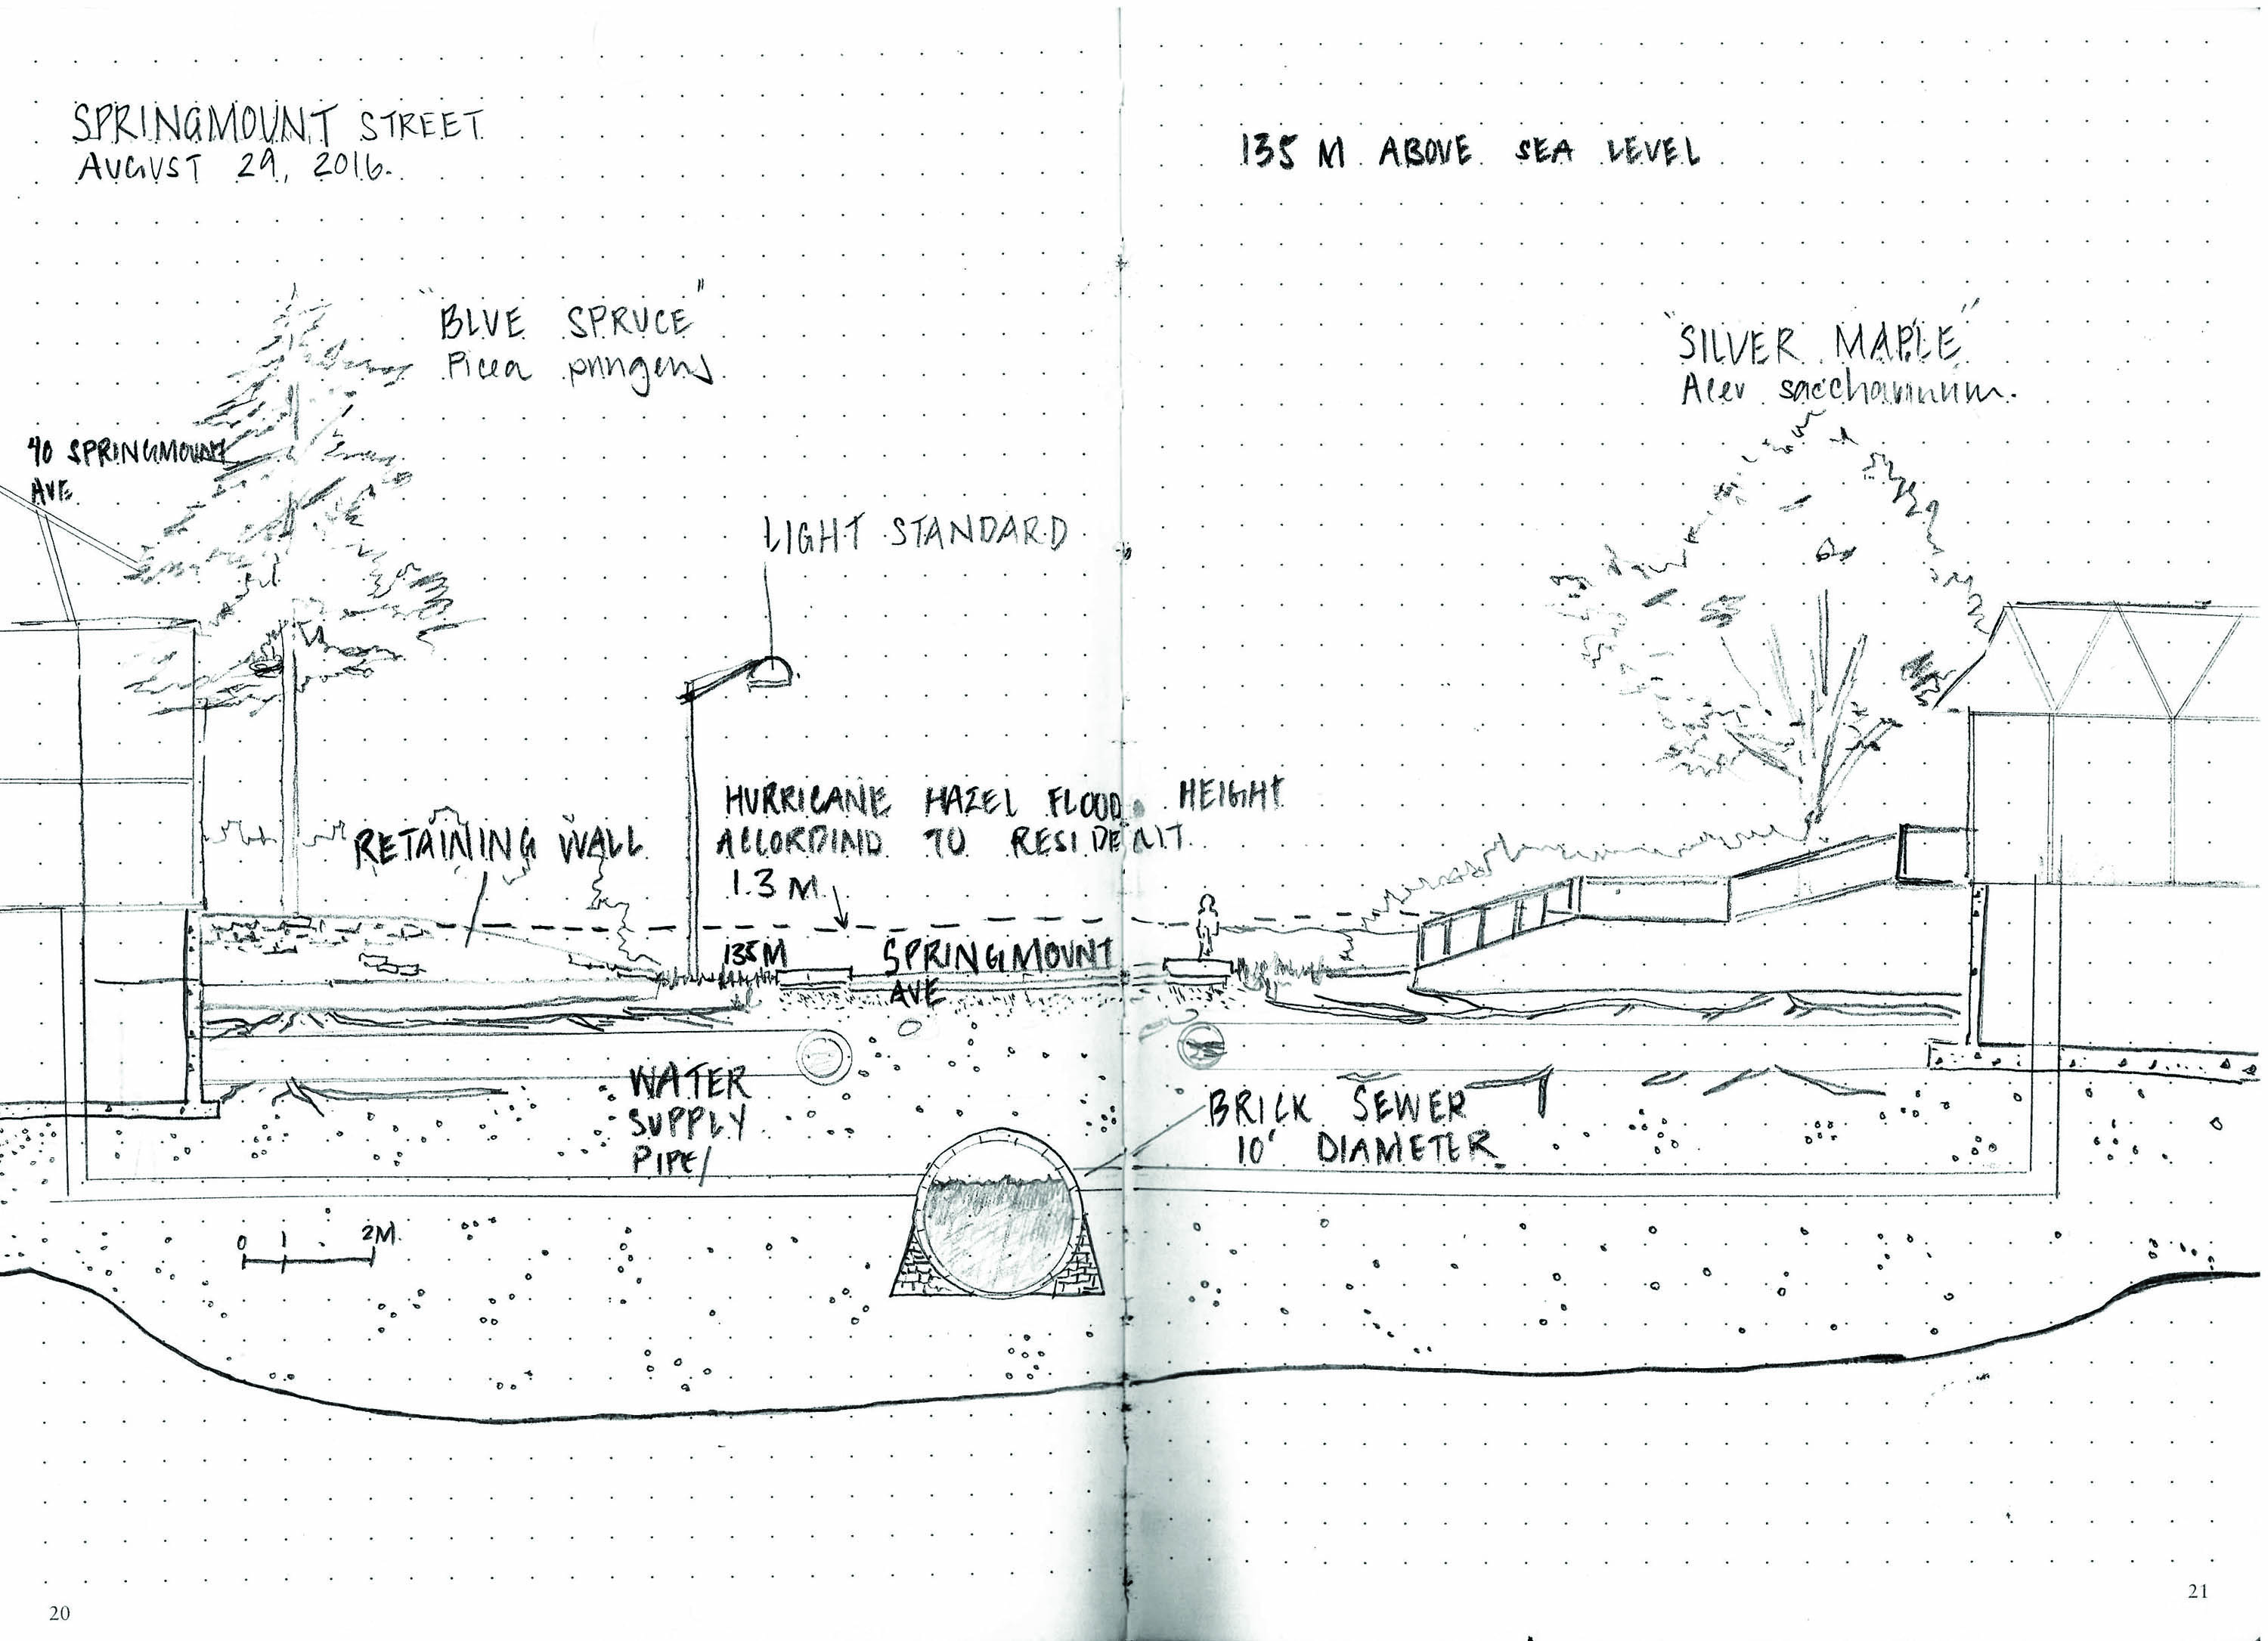 SPRINGMOUNT STREET
AUGUST 29, 2016.
135 M ABOVE SEA LEVEL
"BLUE SPRUCE"
Picea pungens
"SILVER MAPLE"
Acer saccharinum.
40 SPRINGMOUNT
AVE
LIGHT STANDARD
HURRICANE HAZEL FLOOD HEIGHT
ACCORDIND TO RESIDENT
1.3 M
RETAINING WALL
135M
SPRINGMOUNT
AVE
WATER
SUPPLY
PIPE/
BRICK SEWER
10' DIAMETER
0 1 2M.
20
21